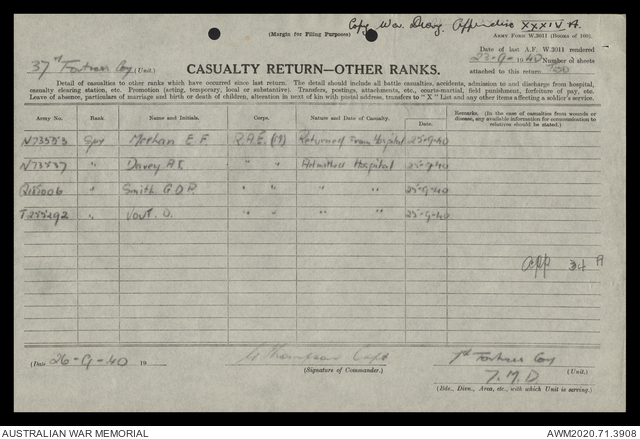 Copy War Diary. Appendix XXXIV A.
(Margin for Filing Purposes)
ARMY FORM W.3011 (Books of 100).
37th Fortress Coy (Unit.)
Date of last A.F. W.3011 rendered
23-9-1940
CASUALTY RETURN—OTHER RANKS.
Number of sheets
attached to this return
Detail of casualties to other ranks which have occurred since last return. The detail should include all battle casualties, accidents, admission to and discharge from hospital,
casualty clearing station, etc. Promotion (acting, temporary, local or substantive). Transfers, postings, attachments, etc., courts-martial, field punishment, forfeiture of pay, etc.
Leave of absence, particulars of marriage and birth or death of children, alteration in next of kin with postal address, transfers to "X" List and any other items affecting a soldier's service.
Army No. Rank Name and Initials. Corps. Nature and Date of Casualty. Date. Remarks. (In the case of casualties from wounds or
disease, any available information for communication to
relatives should be stated.)
N73553 Spr Meehan E F R.A.E. (19) Returned From Hospital 25-9-40
N73537 " Davey A.E " " Admitted Hospital 25-9-40
" Smith G O R " " " " 25-9-40
T255292 " " " " " 25-9-40
App 34 A
(Date 26-9-40 19
G Thompson Capt
(Signature of Commander.)
Fortress Coy
(Unit.)
7. M. D
(Bde., Divn., Area, etc., with which Unit is serving.)
AUSTRALIAN WAR MEMORIAL
AWM2020.71.3908